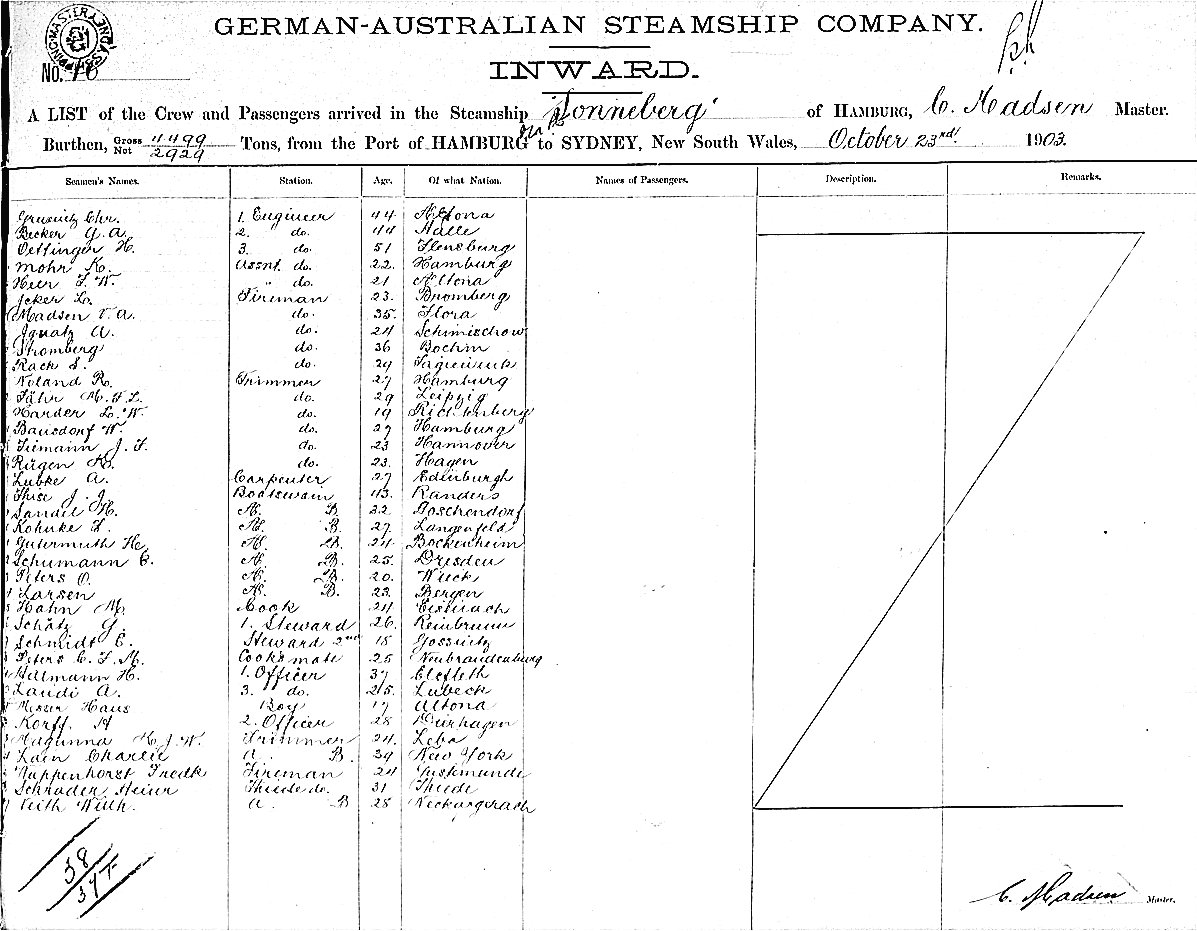 GERMAN-AUSTRALIAN STEAMSHIP COMPANY.
No. 10
INWARD.
A LIST of the Crew and Passengers arrived in the Steamship "Sonneberg" of HAMBURG, C. Madsen Master.
Burthen, Gross 4499 Net 2929 Tons, from the Port of HAMBURG to SYDNEY, New South Wales, October 23rd 1903.
Seamen's Names. Station. Age. Of what Nation. Names of Passengers. Description. Remarks.
Chr. 1. Engineer 44 Altona
Becker G. A. 2. do. 44 Halle
Oettinger H. 3. do. 51 Flensburg
Mohr K. Assnt. do. 22. Hamburg
Heer F. W. " do. 21 Altona
Jcker L. Fireman 23. Bromberg
Madsen V. A. do. 35. Flora
Ignatz A. do. 24 Schimischow
Stromberg do. 36 Bochum
Rach S. do. 29
Noland R. Trimmer 27 Hamburg
Jähr M. F. L. do. 29 Leipzig
Harder L. W. do. 19
Bausdorf W. do. 27 Hamburg
Tiemann J. F. do. 23 Hannover
Rügen K. do. 23. Hagen
Lubke A. Carpenter 27 Edinburgh
Thise J. J. Boatswain 43. Randers
Sandel H. A. B. 22 Boschendorf
Kohnke F. A. B. 27. Langenfeld
Gutermuth He. A. B. 24 Bockenheim
Schumann C. A. B. 25. Dresden
Peters O. A. B. 20. Wieck
Larsen A. B. 23. Bergen
Hahn M. Cook 24 Eisenach
Schätz G. 1. Steward 26. Reinbrunn
Schmidt C. Steward 2nd 18 Gossnitz
Peters C. F. M. Cooksmate 25 Neubrandenburg
Hillmann H. 1. Officer 37 Elsfleth
Landi A. 3. do. 25. Lubeck
Messer Hans Boy 17 Altona
Korff. H 2. Officer 28
Magunna H. J. W. Trimmer 24. Leba
Lain Charlie A. B. 39 New York
Nuppenhorst Fredk Fireman 24
Schrader Heinr do. 31 Thiede
Veith Wilh. A B 28 Neckargerach
38
37 +
C. Madsen Master.